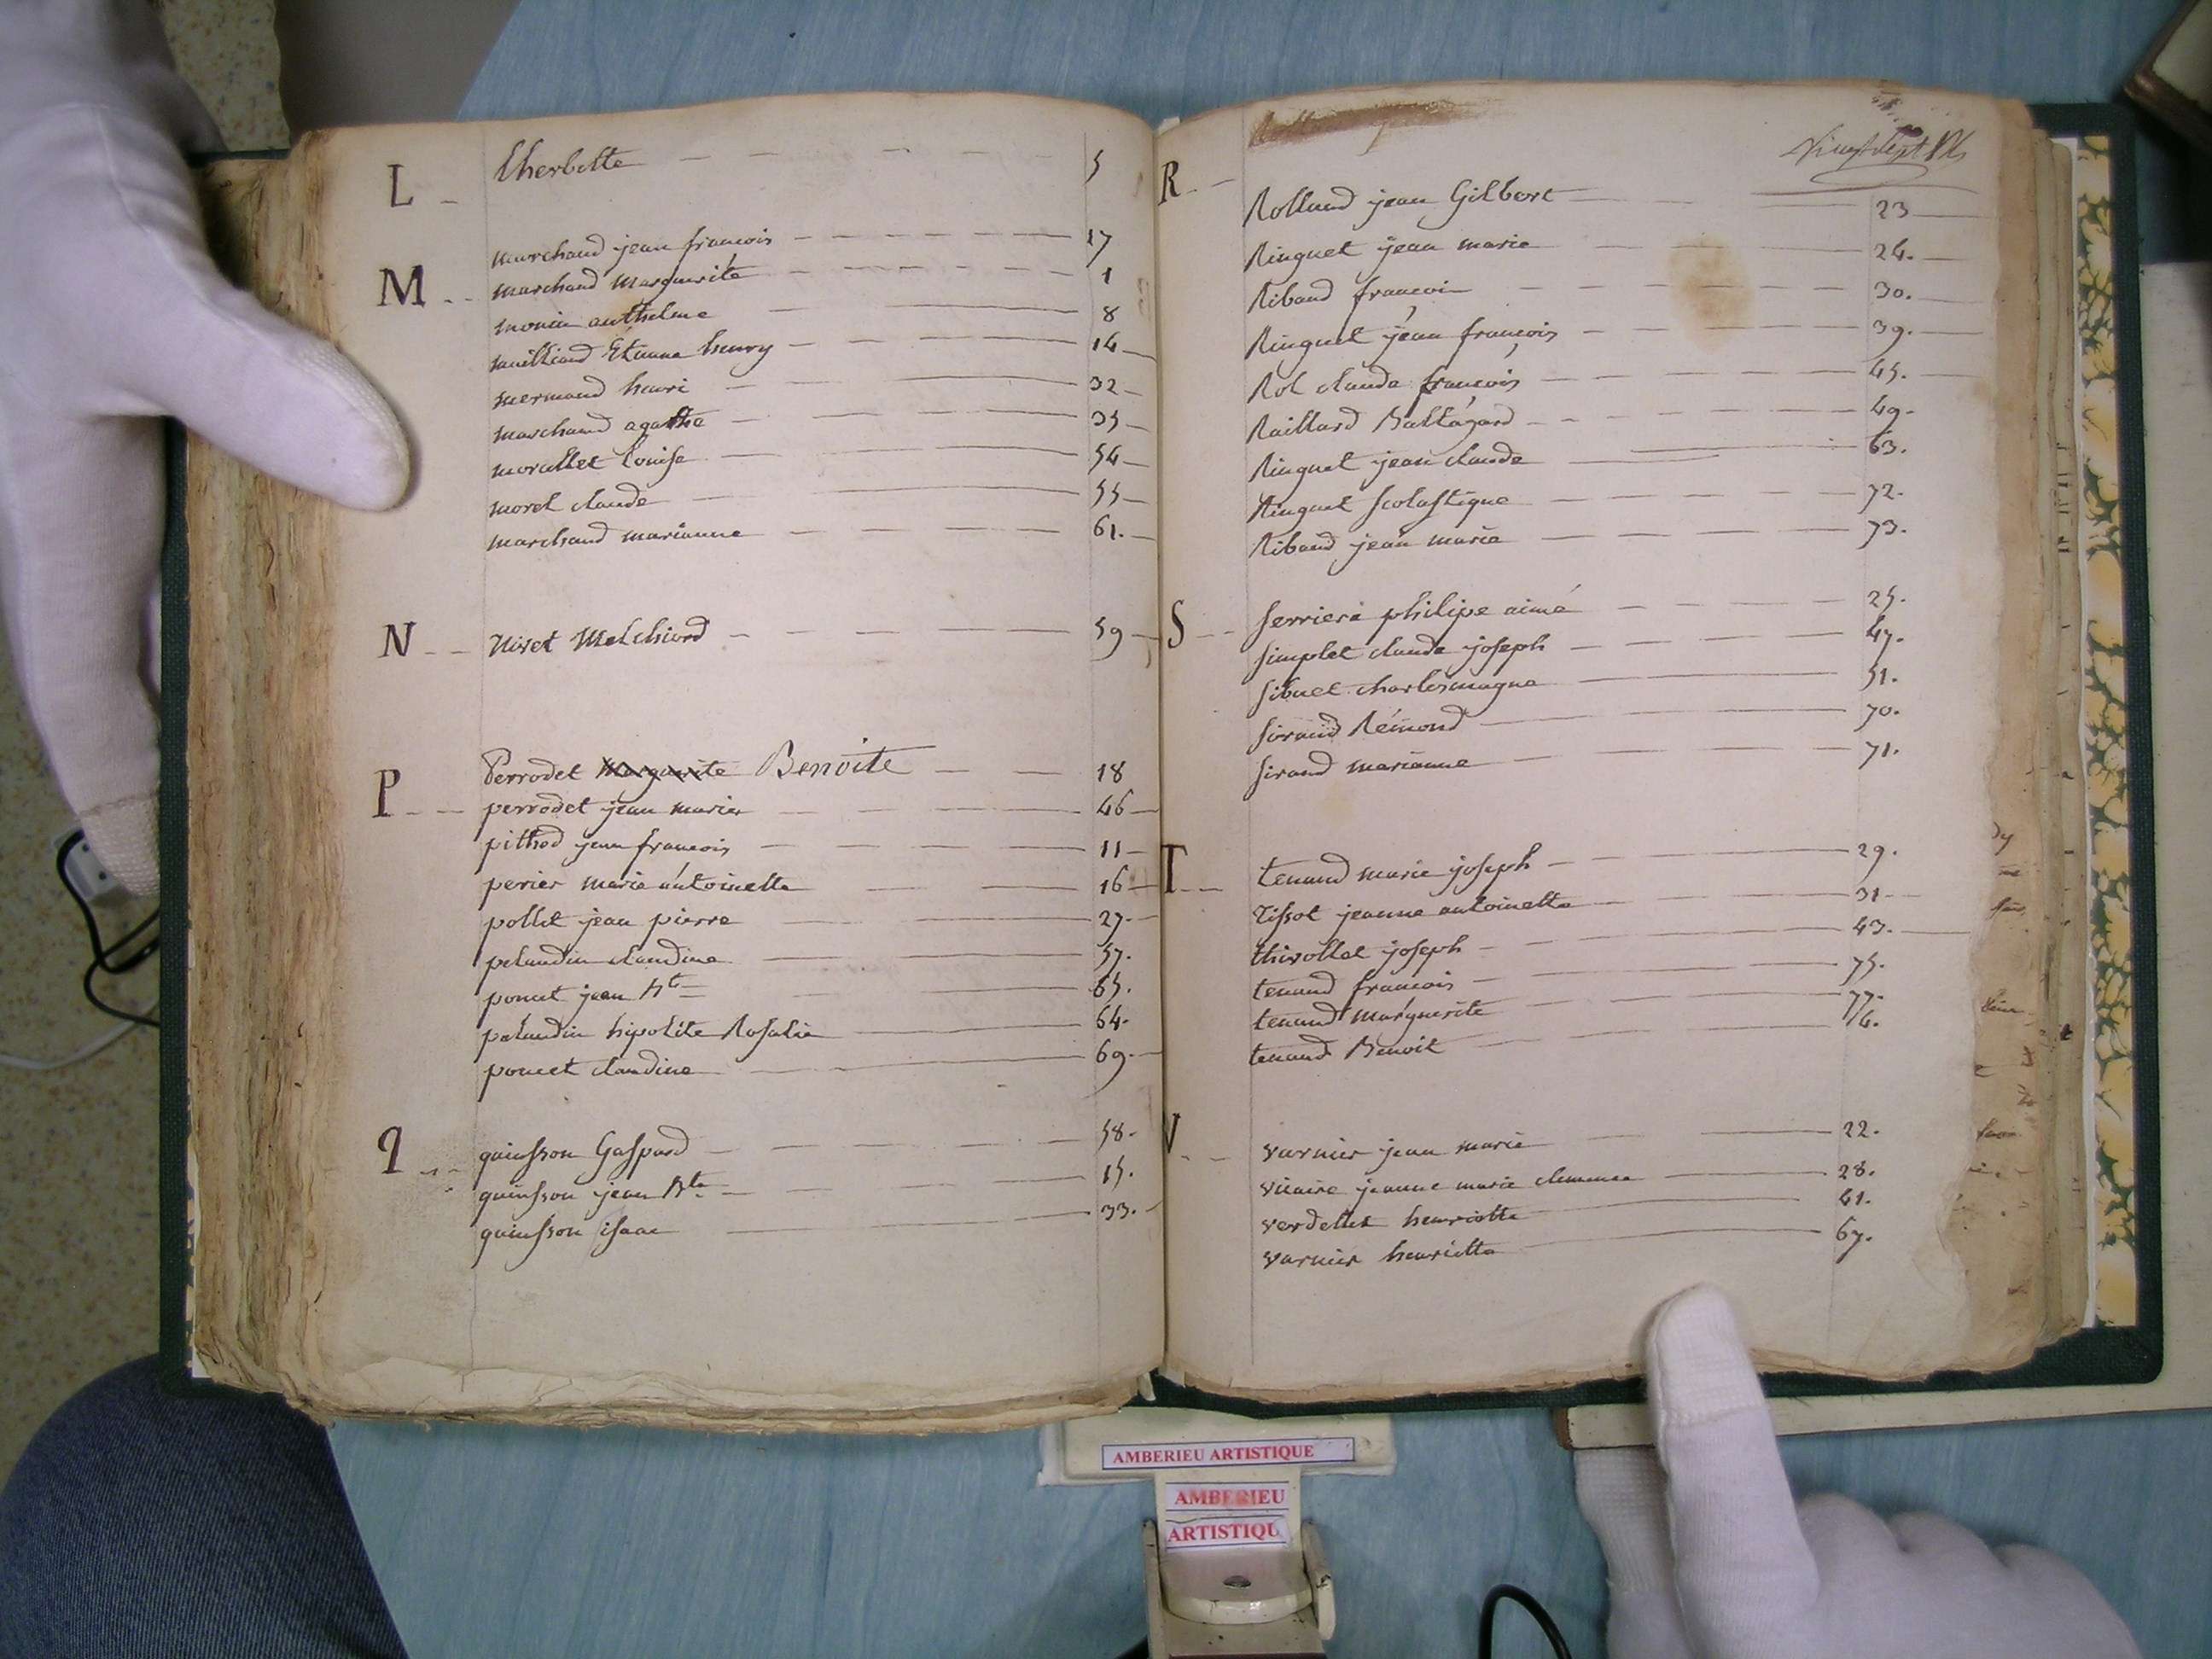 L
Lherbette 5
marchand jean francois 17
M
marchand marguerite 1
monin anthelme 8
milliand Etienne henry 14
mermand henri 32
marchand agathe 35
morellet Louise 54
morel claude 55
marchand marianne 61.
N
Nivet Melchiord 59
P
Perrodet Marguerite Benoite 18
perrodet jean marie 46
pithod jean francois 11
perier marie antoinette 16
pollet jean pierre 27.
pelandin claudine 57.
poncet jean Bte 65.
pelandin hipolite Rosalie 64.
poncet claudine 69.
Q
quinsson Gaspard 58.
quinsson jean Bte 15.
quinsson isaac 33.
vingt Sept
R
Rolland jean Gilbert 23
Ringuet jean marie 24.
Ribaud francois 30.
Ringuet jean françois 39.
Rol claude françois 45.
Raillard Baltazard 49.
Ringuet jean claude 63.
Ringuet Scolastique 72.
Ribaud jean marie 73.
S
Serriere philipe aimé 25.
Simplet claude joseph 47.
Sibuet charlesmagne 51.
Siraud Rémond 70.
Siraud marianne 71.
T
tenand marie joseph 29.
Tissot jeanne antoinette 31
thivollet joseph 43.
tenand francois 75.
tenand marguerite 77.
tenand Benoit
V
varnier jean marie 22.
vicaire jeanne marie clemence 28.
verdellet henriette 41.
varnier henriette 67.
AMBERIEU ARTISTIQUE
AMBERIEU
ARTISTIQU